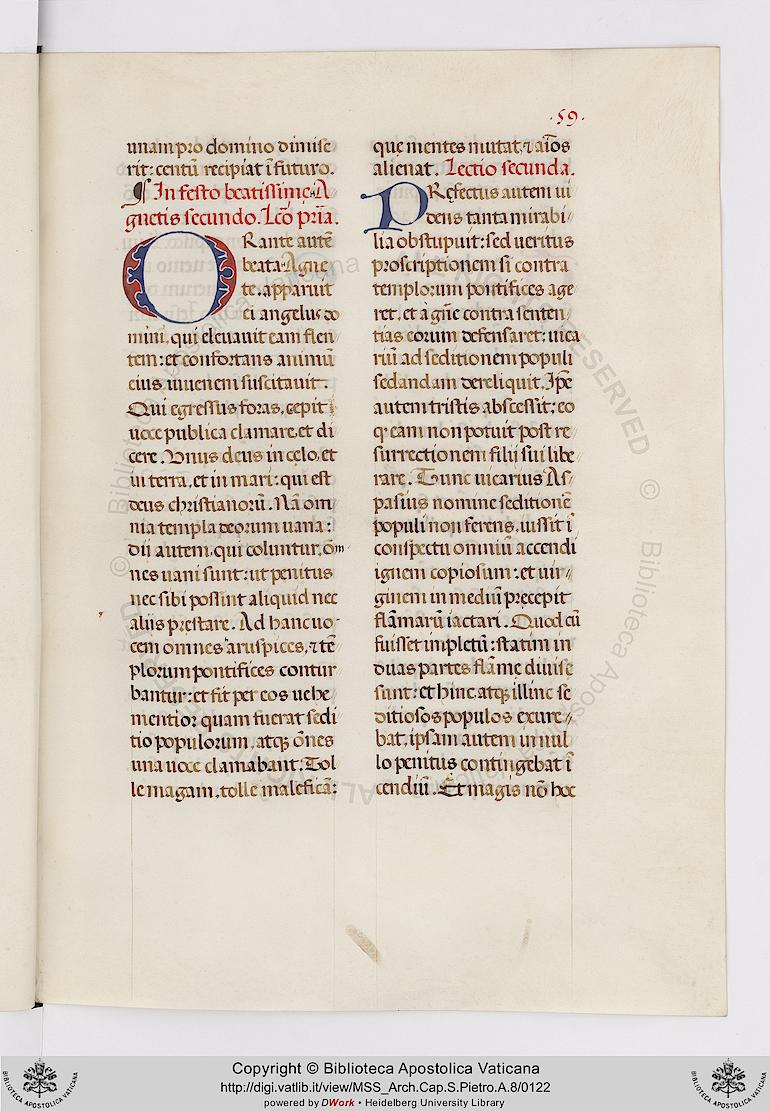 ·59·
unam pro domino dimise
rit: centū recipiat ī futuro.
¶ In festo beatissimę A
gnetis secundo. Lc̄o pria̅.
ORante autē
beata Agne
te. apparuit
ei angelus do
mini, qui elevavit eam flen
tem: et confortans animū
eius iuvenem suscitavit.
Qui egressus foras, cepit
voce publica clamare, et di
cere. Vnus deus in celo, et
in terra, et in mari: qui est
deus christianorū. Nā om
nia templa deorum vana:
dii autem, qui coluntur, om̄
nes vani sunt: ut penitus
nec sibi possint aliquid nec
aliis prestare. Ad hanc vo
cem omnes aruspices, ⁊ tē
plorum pontifices contur
bantur: et fit per eos vehe
mentior quam fuerat sedi
tio populorum, atq; ōnes
una voce clamabant: Tol
le magam, tolle maleficā:
quę mentes mutat, ⁊ aīos
alienat. Lectio secunda.
PRefectus autem vi
dens tanta mirabi
lia obstupuit: sed veritus
proscriptionem si contra
templorum pontifices age
ret, et Agnē contra senten
tias eorum defensaret: vica
riū ad seditionem populi
sedandam dereliquit. Ip̄e
autem tristis abscessit: eo
q̷ eam non potuit post re
surrectionem filii sui libe
rare. Tunc vicarius As
pasius nomine seditionē
populi non ferens, iussit ī
conspectu omniū accendi
ignem copiosum: et vir
ginem in mediū pręcepit
flāmarū iactari. Quod cū
fuisset inpletū: statim in
duas partes flāme divise
sunt: et hinc atq; illinc se
ditiosos populos exure
bat, ipsam autem in nul
lo penitus contingebat ī
cendiū. Et magis nō hoc
© Biblioteca Apostolica Vaticana
ALL RIGHTS RESERVED
Copyright © Biblioteca Apostolica Vaticana
http://digi.vatlib.it/view/MSS_Arch.Cap.S.Pietro.A.8/0122
powered by DWork • Heidelberg University Library
BIBLIOTECA APOSTOLICA VATICANA
BIBLIOTECA APOSTOLICA VATICANA